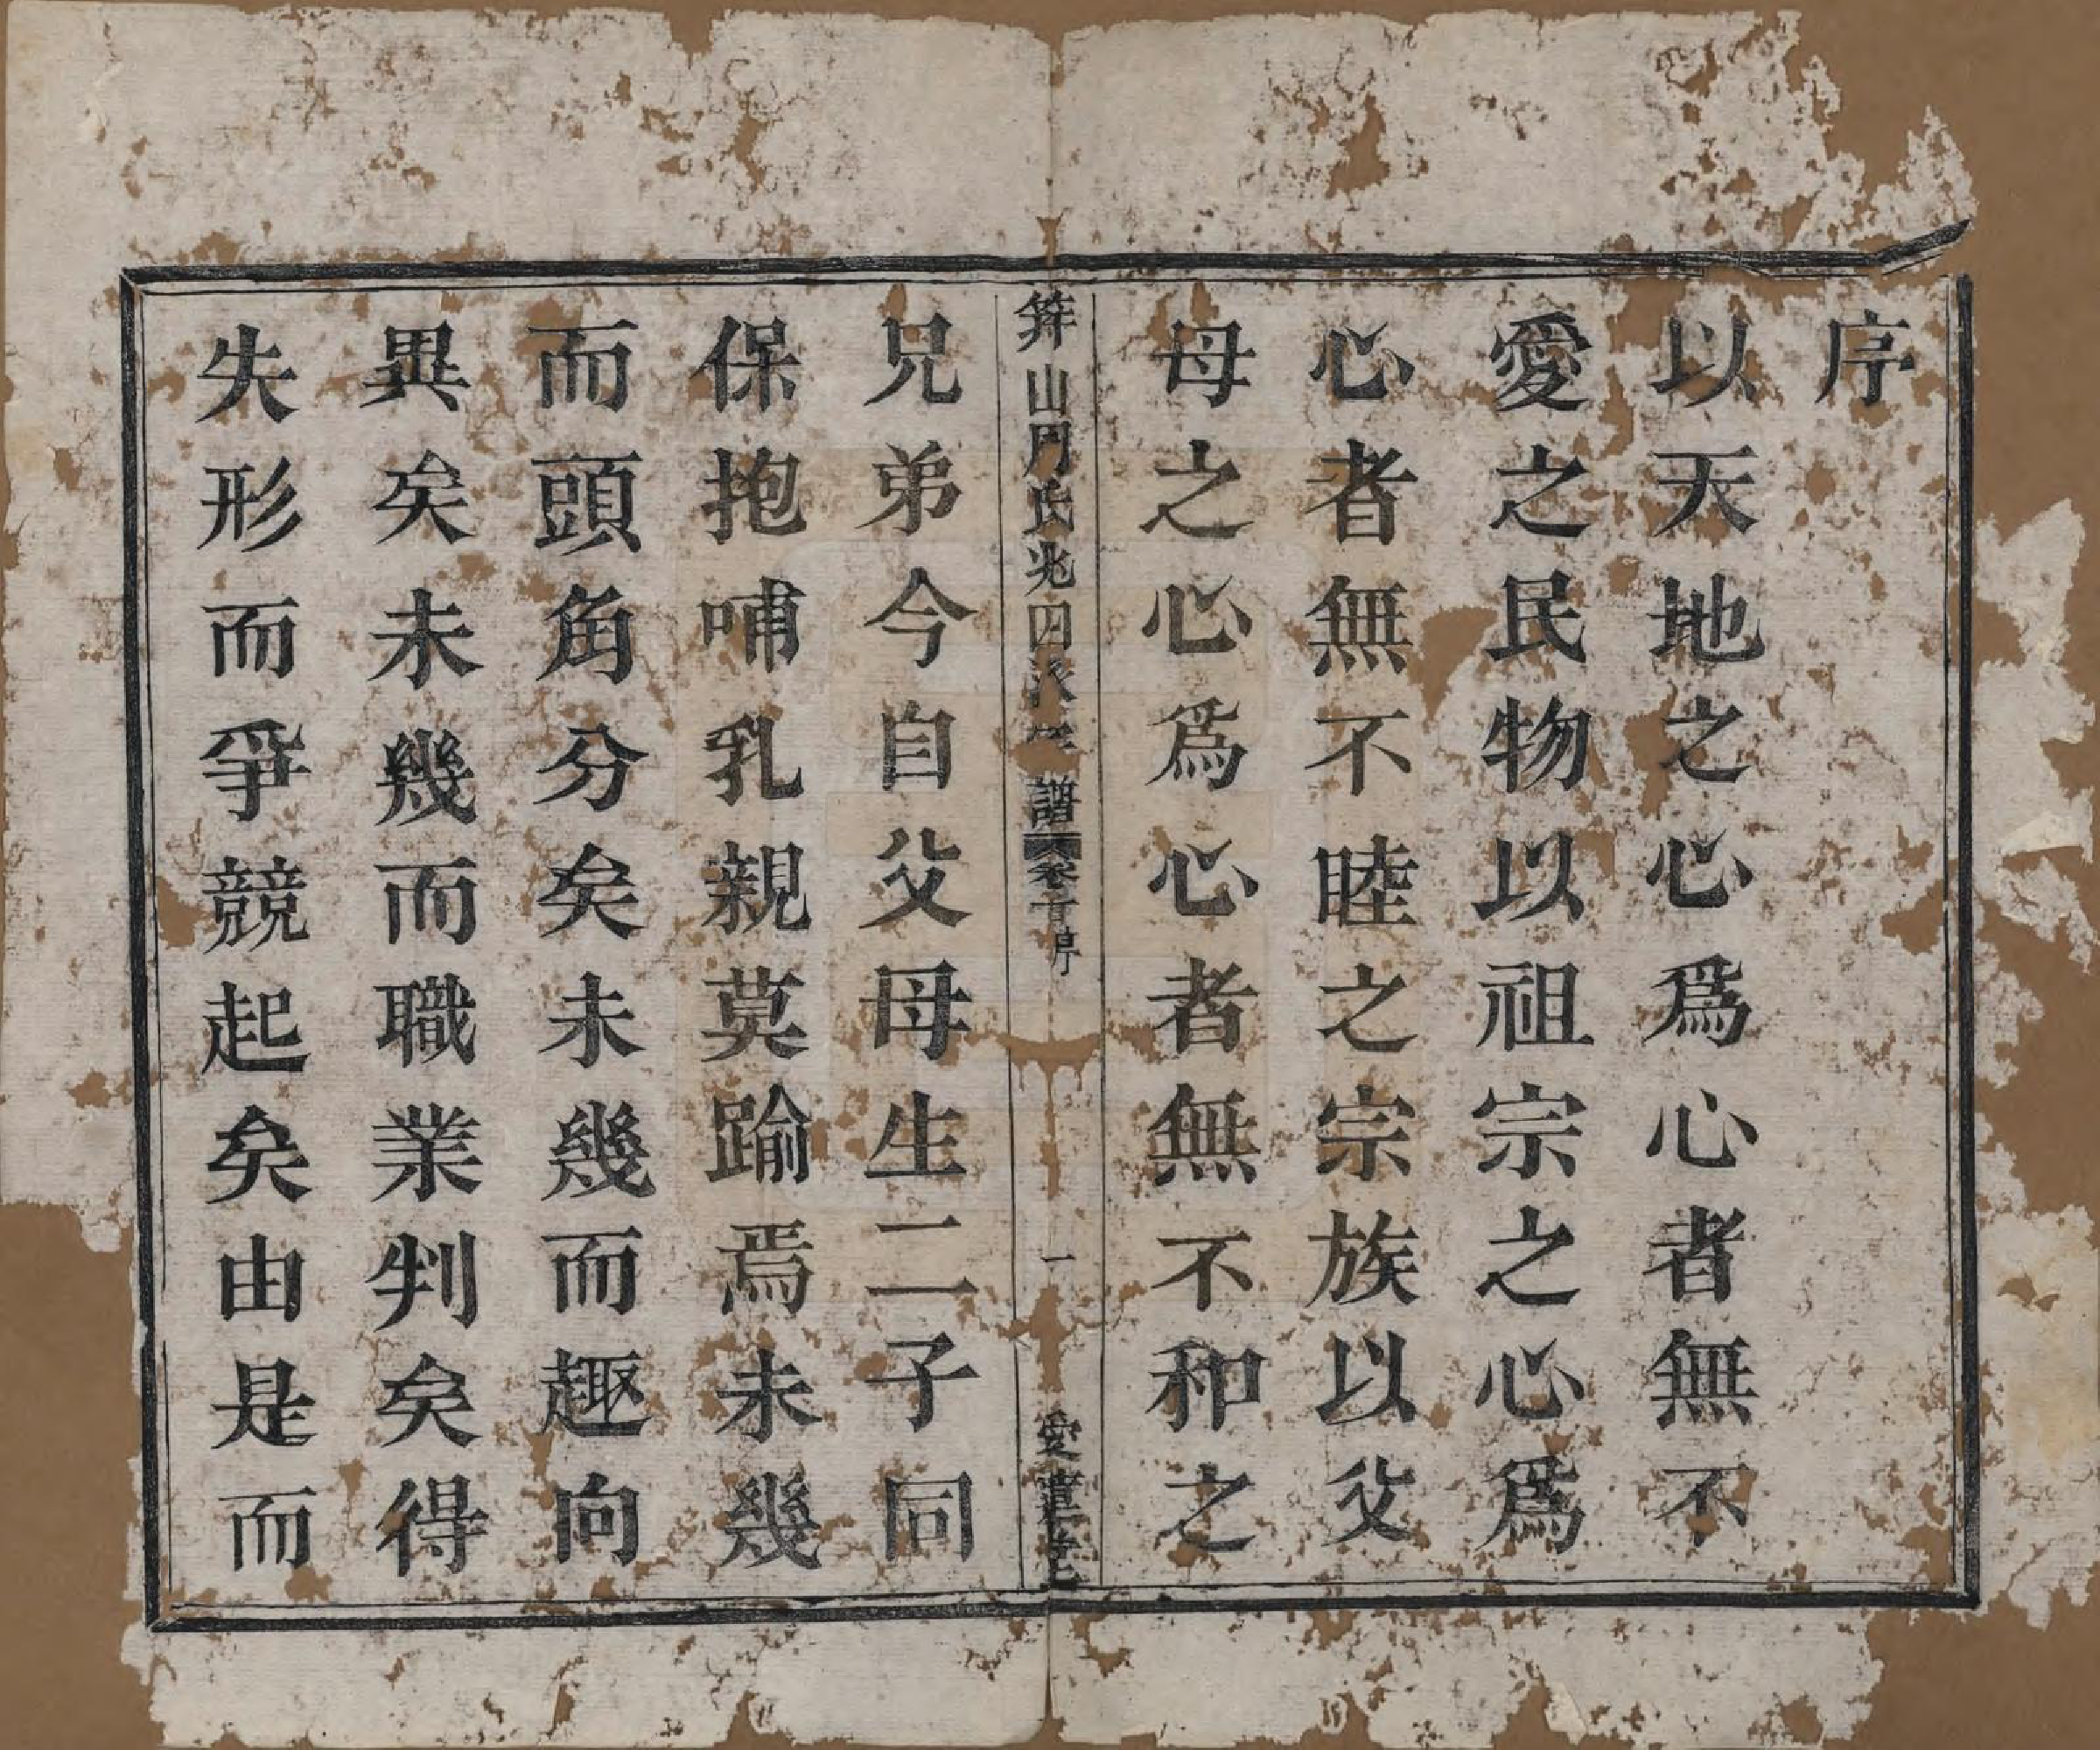 序
以天地之心爲心者無不
愛之民物以祖宗之心爲
心者無不睦之宗族以父
母之心爲心者無不和之
山周氏兆四派 譜 卷首 序 一 愛蓮堂
兄弟今自父母生二子同
保抱哺乳親莫踰焉未幾
而頭角分矣未幾而趣向
異矣未幾而職業判矣得
失形而爭競起矣由是而